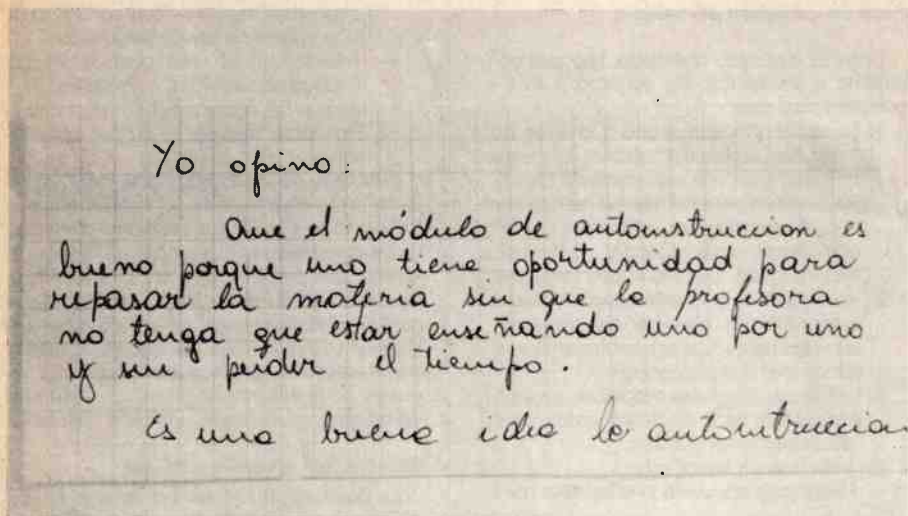 Yo opino:
Que el módulo de autoinstruccion es
bueno porque uno tiene oportunidad para
repasar la materia sin que la profesora
no tenga que estar enseñando uno por uno
y sin perder el tiempo.
Es una buena idea la autointruccion